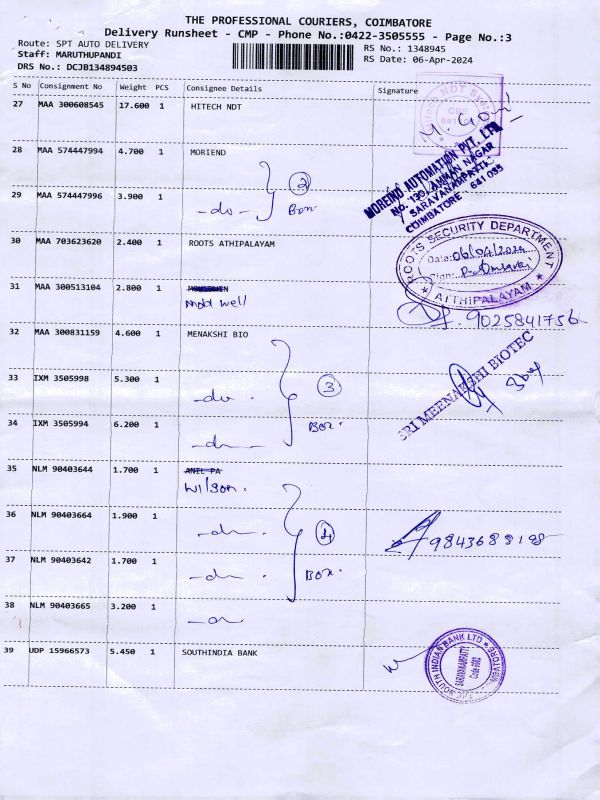 THE PROFESSIONAL COURIERS, COIMBATORE
Delivery Runsheet - CMP - Phone No.:0422-3505555 - Page No.:3
Route: SPT AUTO DELIVERY
RS No.: 1348945
Staff: MARUTHUPANDI
RS Date: 06-Apr-2024
DRS No.: DCJB134894503
S No Consignment No Weight PCS Consignee Details Signature
27 MAA 300608545 17.600 1 HITECH NDT
28 MAA 574447994 4.700 1 MORIEND
MOREIND AUTOMATION PVT. LTD
NO. 130, AMMAN NAGAR
SARAVANAMPATTI
COIMBATORE 641 035
29 MAA 574447996 3.900 1 -do- 2 Box
30 MAA 703623620 2.400 1 ROOTS ATHIPALAYAM
ROOTS SECURITY DEPARTMENT
Date: 06/04/2024
Sign:
★ ATTHIPALAYAM ★
31 MAA 513104 2.800 1
Mold well
9025841756
32 MAA 300831159 4.600 1 MENAKSHI BIO
SRI MEENAKSHI BIOTEC
33 IXM 3505998 5.300 1 -do- . 3
34 IXM 3505994 6.200 1 -do- Box.
35 NLM 90403644 1.700 1 ANIL PA
Wilson.
36 NLM 90403664 1.900 1 -do- . 4
9843689198
37 NLM 90403642 1.700 1 -do- . Box.
38 NLM 90403665 3.200 1 -do-
39 UDP 15966573 5.450 1 SOUTHINDIA BANK
SOUTH INDIAN BANK LTD
SARAVANAMPATTY